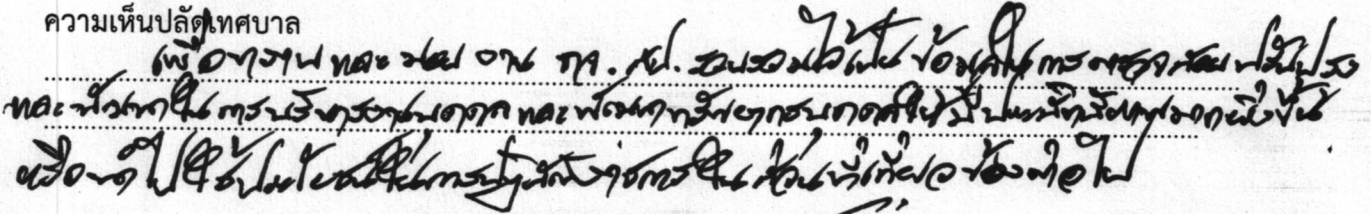 ความเห็นปลัดเทศบาล
เพื่อทราบ และ มอบ งาน กจ. รวบรวมไว้เป็น ข้อมูลในการ ปรับปรุง
และ พัฒนาในการบริหารงานบุคคล และ พัฒนาทรัพยากรบุคคลให้มีประสิทธิภาพมากยิ่งขึ้น
หรือนำไปใช้ประโยชน์ในการปฏิบัติราชการในส่วนที่เกี่ยวข้องต่อไป